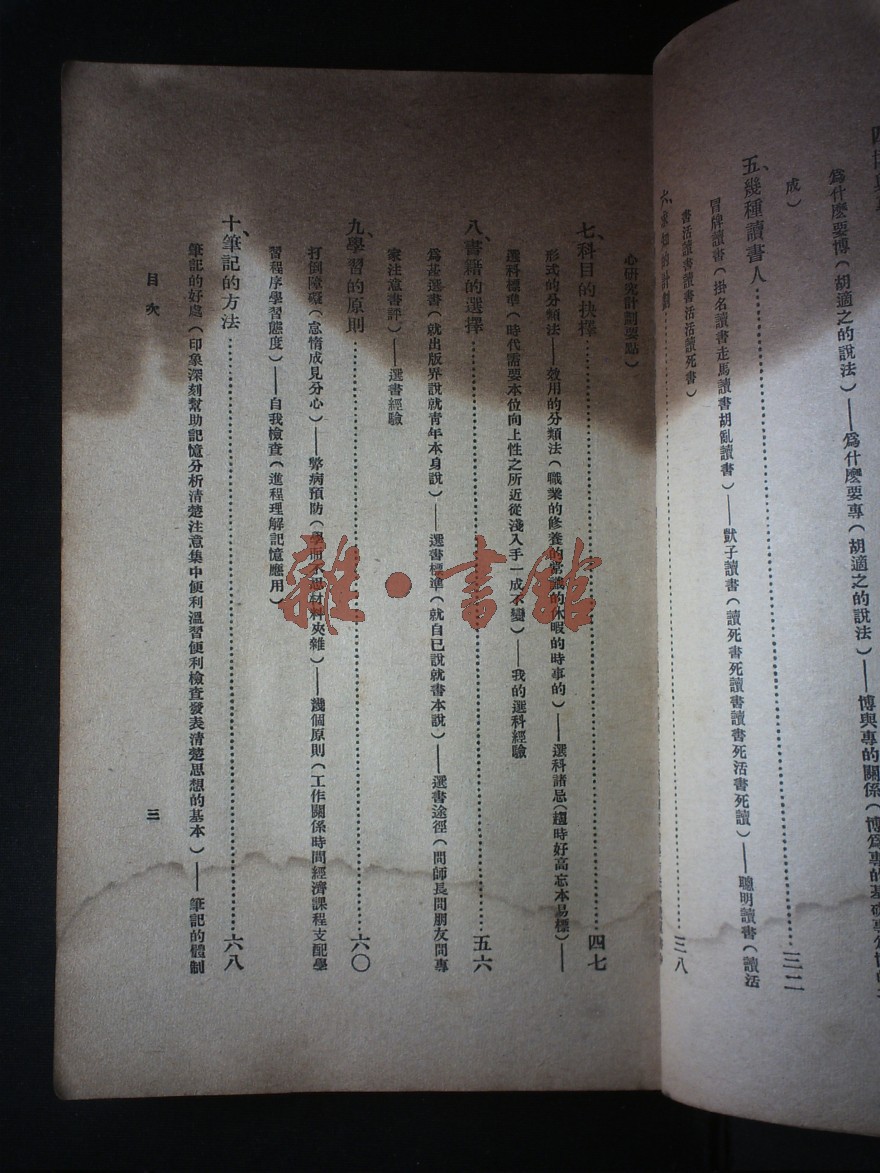 爲什麼要博（胡適之的說法）——爲什麼要專（胡適之的說法）——博與專的關係（博爲專的基礎專
成）
五、幾種讀書人……三二
冒牌讀書（掛名讀書走馬讀書胡亂讀書）——獃子讀書（讀死書死讀書讀書死活書死讀）——聰明讀書（讀活
書活讀書讀書活活讀死書）
六、求知的計劃……三八
心研究計劃要點）
七、科目的抉擇……四七
形式的分類法——效用的分類法（職業的修養的常識的休暇的時事的）——選科諸忌（趨時好高忘本易標）——
選科標準（時代需要本位向上性之所近從淺入手一成不變）——我的選科經驗
八、書籍的選擇……五六
爲甚選書（就出版界說就青年本身說）——選書標準（就自己說就書本說）——選書途徑（問師長問朋友問專
家注意書評）——選書經驗
九、學習的原則……六〇
打倒障礙（怠惰成見分心）——弊病預防（學而不思材料夾雜）——幾個原則（工作關係時間經濟課程支配學
習程序學習態度）——自我檢查（進程理解記憶應用）
十、筆記的方法……六八
筆記的好處（印象深刻幫助記憶分析清楚注意集中便利溫習便利檢查發表清楚思想的基本）——筆記的體制
目次
三
雜·書館